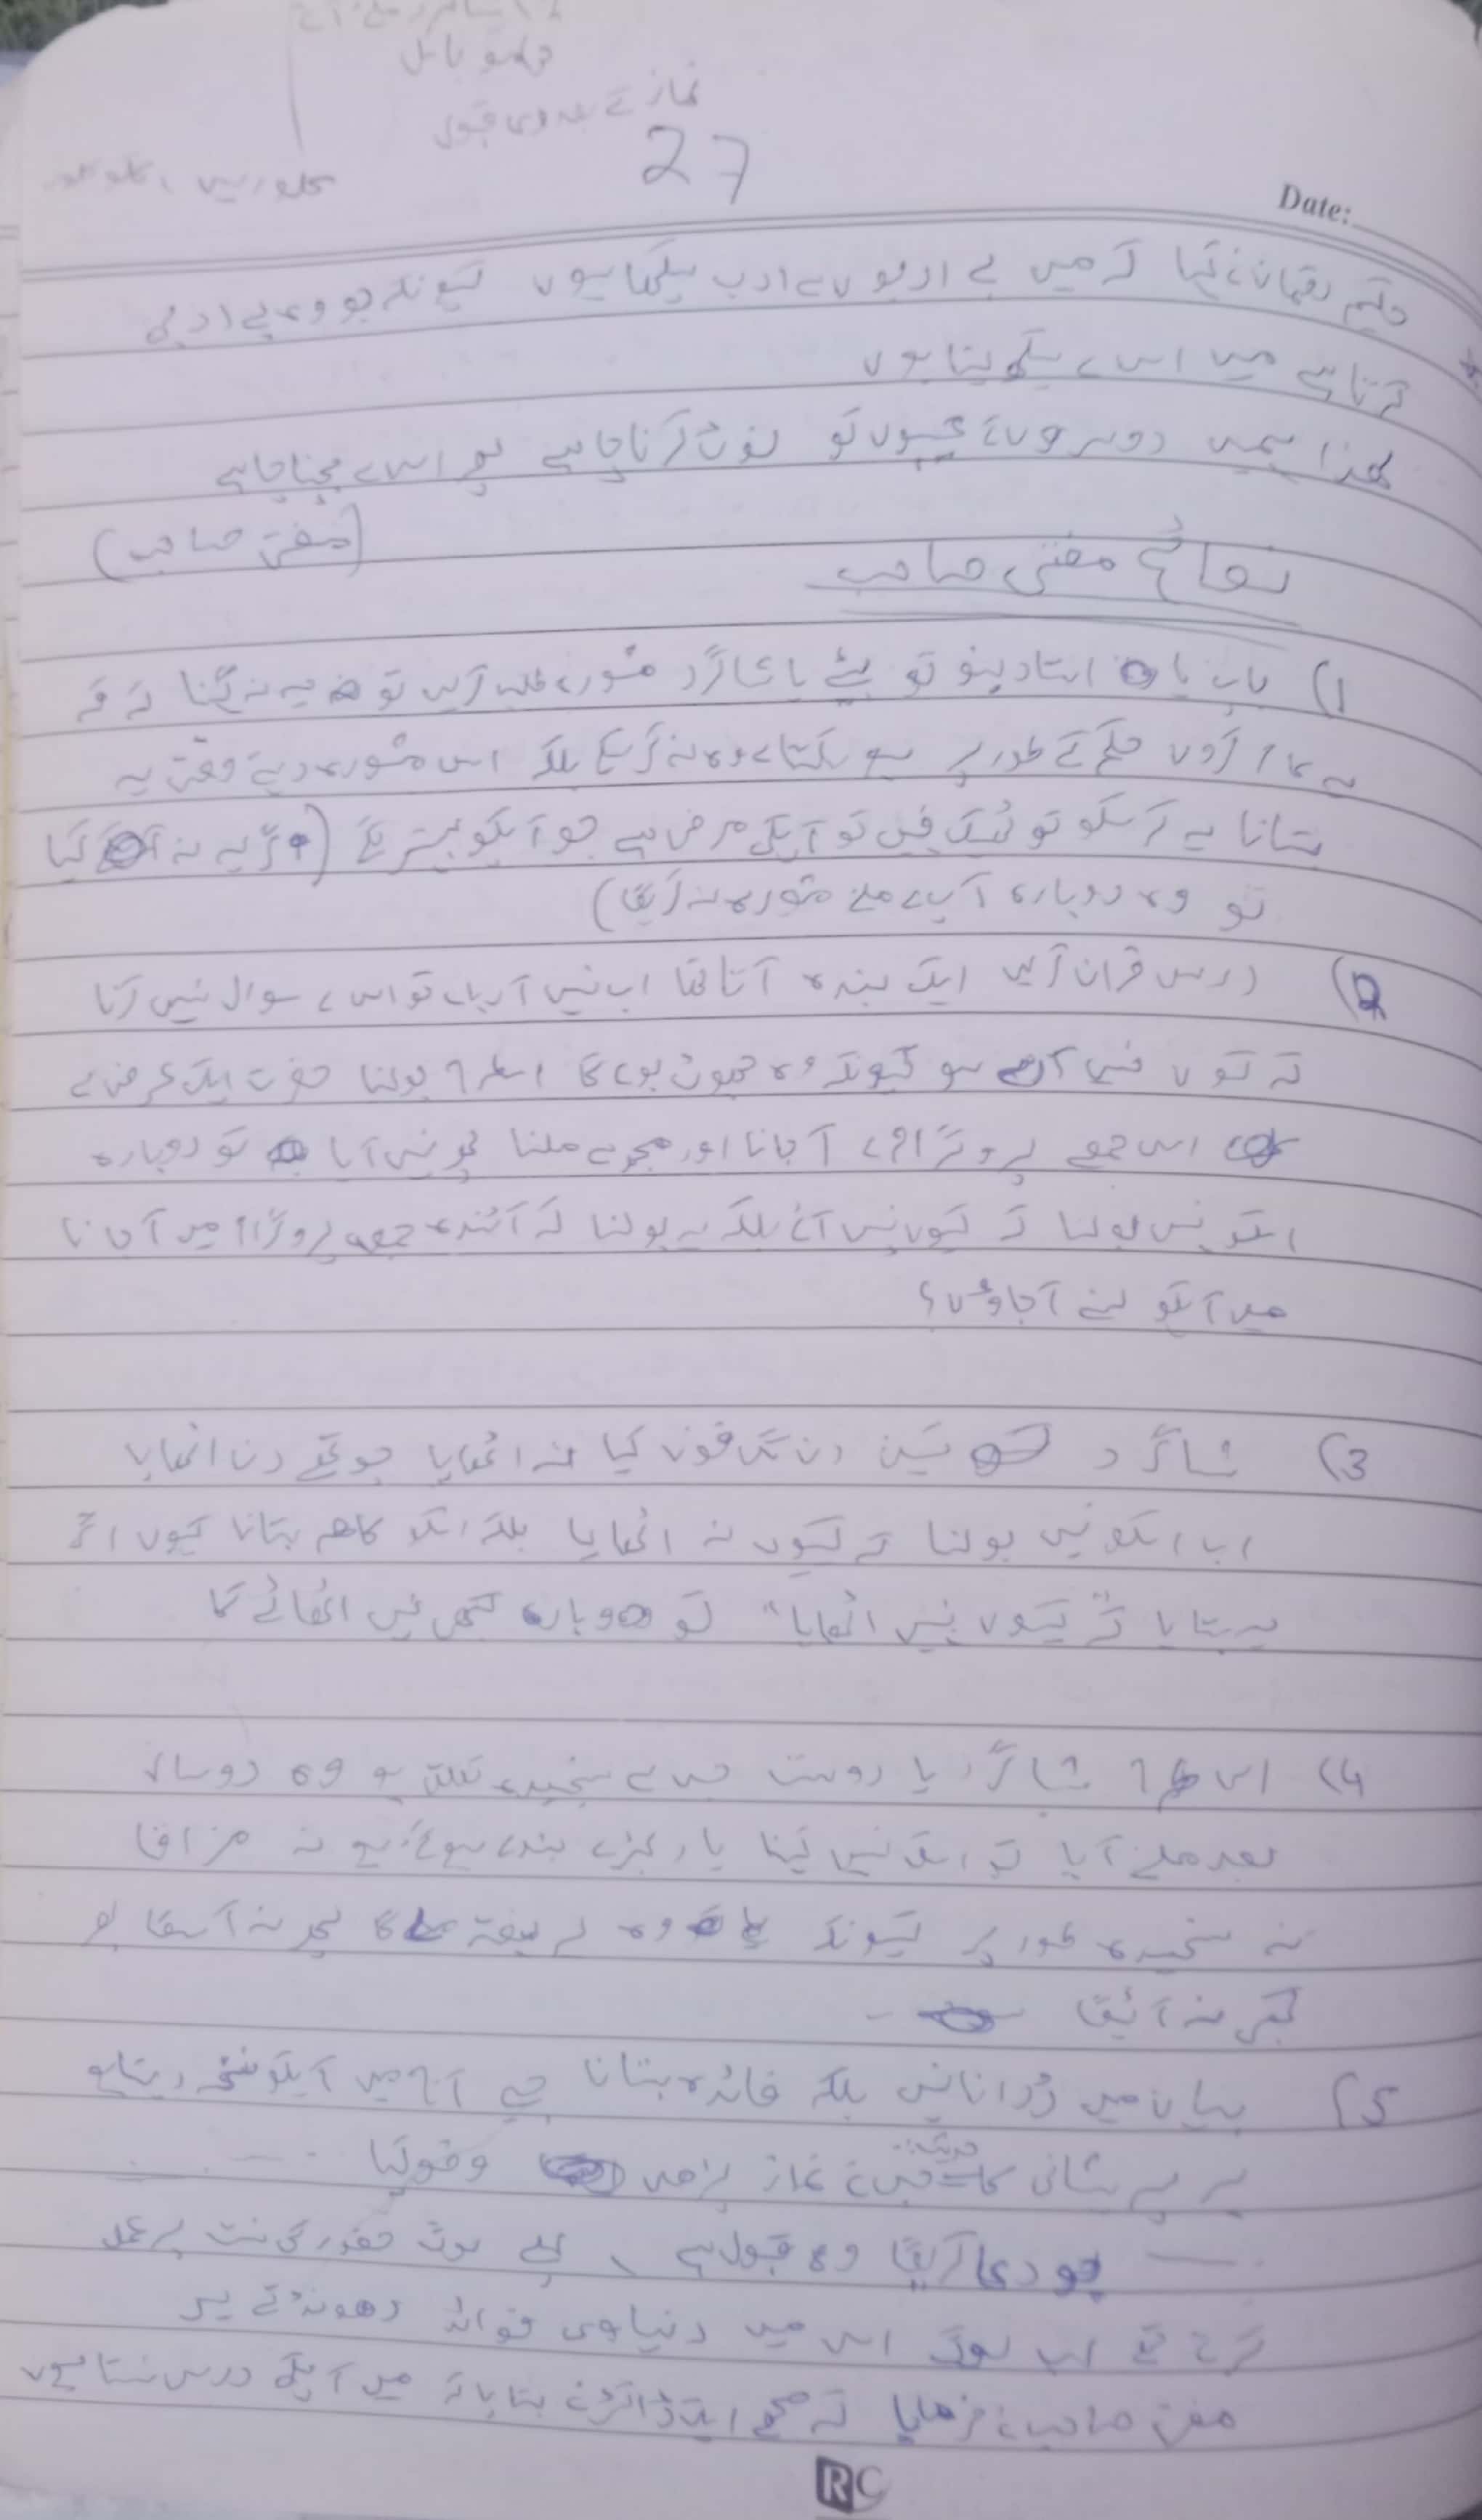 نماز کے بعد دعا قبول
27
Date:
حکیم لقمان نے کہا کہ میں بے ادبوں سے ادب سیکھا ہوں کیونکہ جو وہ بے ادبی
کرتا ہے میں اس سے سیکھ لیتا ہوں
لھذا ہمیں دوسروں کے عیبوں کو نوٹ کرنا چاہیے پھر اس سے بچنا چاہیے
(مفتی صاحب)
نصائح مفتی صاحب
1) باپ یا استاد بنو تو بیٹے یا شاگرد مشورہ طلب کریں تو یہ نہ کہنا کہ
یہ کام کروں حکم کے طور پر ہو سکتا ہے وہ نہ کر سکے بلکہ اس مشورہ دیتے وقت یہ
بتانا یہ کر سکو تو ٹھیک نہیں تو آپکی مرضی ہے جو آپکو بہتر لگے (اگر یہ نہ کیا
تو وہ دوبارہ آپ سے مشورہ نہ کریگا)
2) درس قران کریں ایک بندہ آتا تھا اب نہیں آ رہا تو اس سے سوال نہیں کرنا
کہ کیوں نہیں آ رہے ہو کیونکہ وہ جھوٹ بولے گا اسطرح بولنا حضرت ایک عرض ہے
اس جمعے پروگرام ہے آجانا اور مجھ سے ملنا پھر نہیں آیا تو دوبارہ
اسکو نہیں بولنا کہ کیوں نہیں آئے بلکہ یہ بولنا کہ آئندہ جمعہ پروگرام میں آجانا
میں آپکو لینے آجاوں؟
3) شاگرد کو تین دن تک فون کیا نہ اٹھایا چوتھے دن اٹھایا
اب اسکو نہیں بولنا کہ کیوں نہ اٹھایا بلکہ اسکو کام بتانا کیوں اگر
یہ بتایا کہ "کیوں نہیں اٹھایا" تو دوبارہ کبھی نہیں اٹھائے گا
4) اس طرح شاگرد یا دوست جس سے سنجیدہ تعلق ہو وہ دو سال
بعد ملنے آیا تو اسکو نہیں کہنا یار بڑے بندے ہو گئے ہو نہ مزاقا
نہ سنجیدہ طور پر کیونکہ وہ پھر نہ آسکا پھر
کبھی نہ آئیگا
5) بیان میں ڈرانا نہیں بلکہ فائدہ بتانا جیسے آج میں آپکو نسخہ دیتا ہو
ہر پریشانی کا نماز پڑھیں وضو کیا
جو دعا کریگا وہ قبول ہے ، پہلے لوگ حضور کی سنت پر عمل
کرتے تھے اب لوگ اس میں دنیاوی فوائد ڈھونڈتے ہیں
مفتی صاحب نے فرمایا کہ مجھے ایک ڈاکٹر نے بتایا کہ میں آپکے درس سنتا ہوں
RC